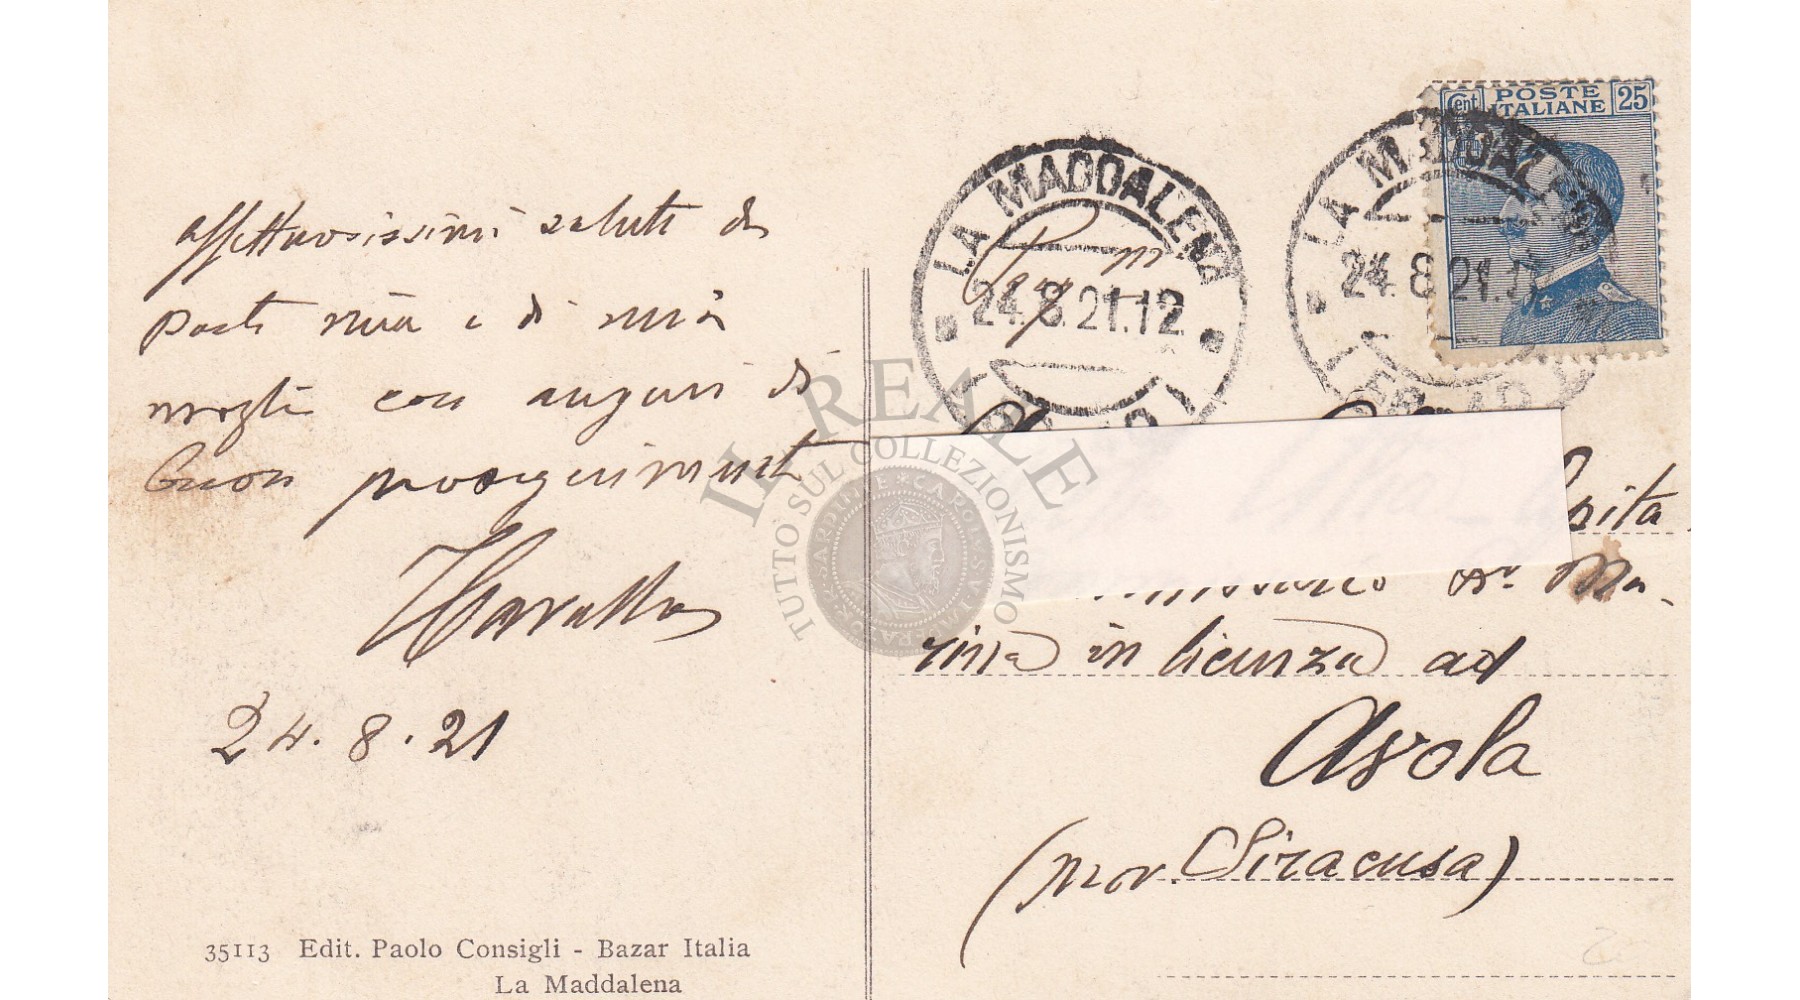 affettuosissimi saluti da
parte mia e di mia
moglie con auguri di
buon proseguimento
24.8.21
35113 Edit. Paolo Consigli - Bazar Italia
La Maddalena
LA MADDALENA
24.8.21.12
Cent POSTE ITALIANE 25
LA MADDALENA
24.8.21.
IL REALE
TUTTO SUL COLLEZIONISMO
Ma-
rina in licenza ad
Avola
(prov. Siracusa)